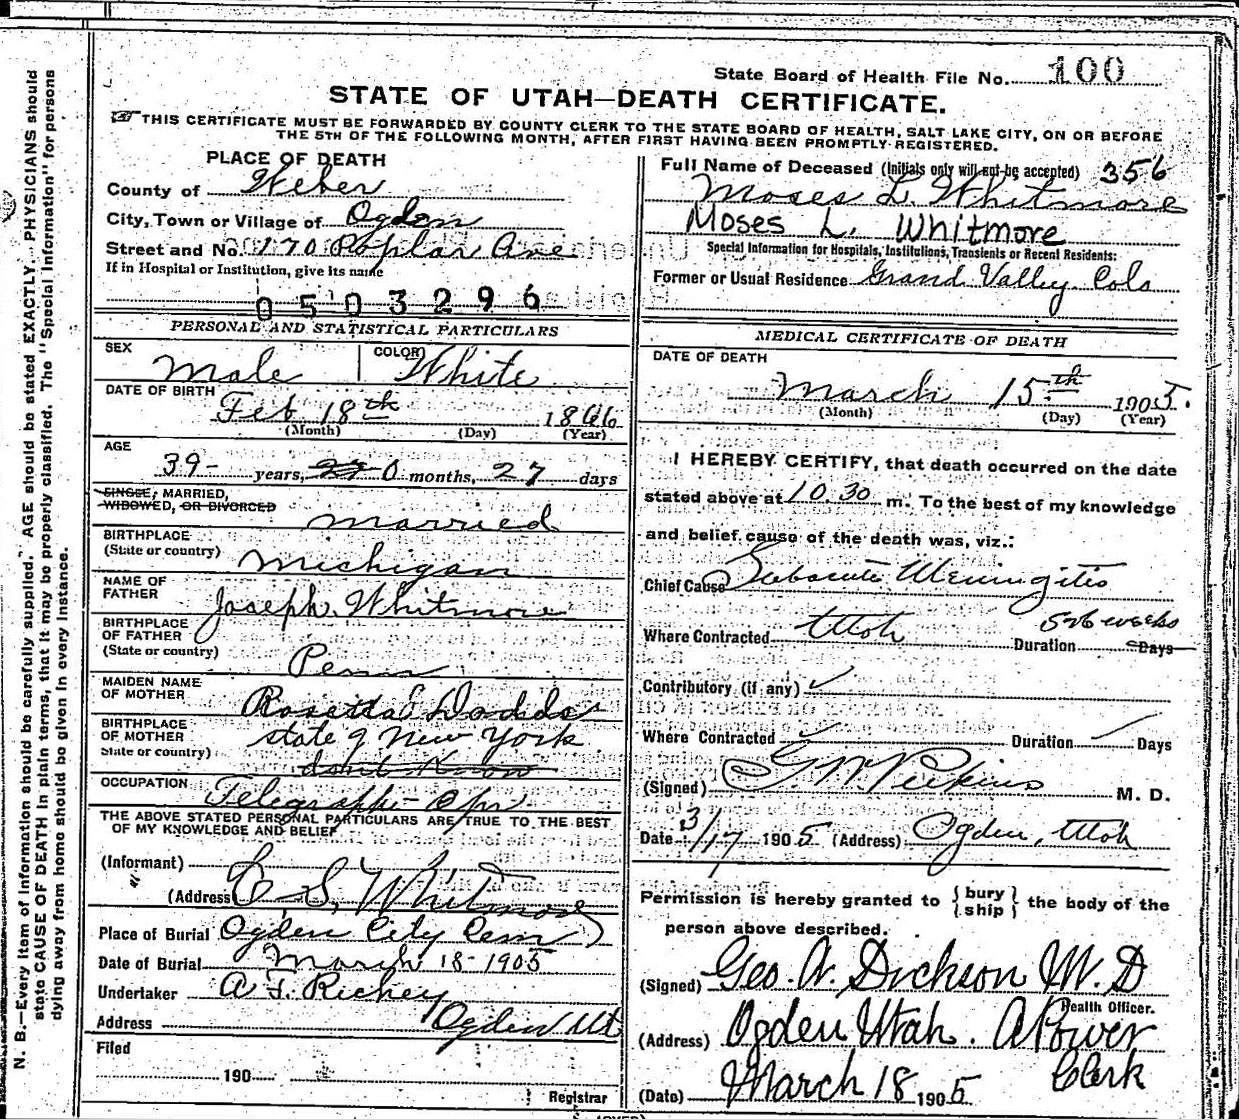 State Board of Health File No. 100
STATE OF UTAH—DEATH CERTIFICATE.
THIS CERTIFICATE MUST BE FORWARDED BY COUNTY CLERK TO THE STATE BOARD OF HEALTH, SALT LAKE CITY, ON OR BEFORE
THE 5TH OF THE FOLLOWING MONTH, AFTER FIRST HAVING BEEN PROMPTLY REGISTERED.
PLACE OF DEATH
County of Weber
City, Town or Village of Ogden
Street and No. 170 Poplar Ave
If in Hospital or Institution, give its name
0503296
PERSONAL AND STATISTICAL PARTICULARS
SEX Male COLOR White
DATE OF BIRTH Feb 18th 1866
(Month) (Day) (Year)
AGE
39- years, 0 months, 27 days
SINGLE, MARRIED,
WIDOWED, OR DIVORCED married
BIRTHPLACE
(State or country) Michigan
NAME OF
FATHER Joseph Whitmore
BIRTHPLACE
OF FATHER
(State or country) Penn
MAIDEN NAME
OF MOTHER Rosetta Dodds
BIRTHPLACE
OF MOTHER state of New York
State or country) dont know
OCCUPATION Telegraph Opr
THE ABOVE STATED PERSONAL PARTICULARS ARE TRUE TO THE BEST
OF MY KNOWLEDGE AND BELIEF
(Informant)
(Address) C. S. Whitmore
Place of Burial Ogden City Cem
Date of Burial March 18-1905
Undertaker A. F. Richey
Address Ogden Ut
Filed
190
Registrar
Full Name of Deceased (Initials only will not be accepted) 356
Moses L. Whitmore
Moses L. Whitmore
Special Information for Hospitals, Institutions, Transients or Recent Residents:
Former or Usual Residence Grand Valley Colo
MEDICAL CERTIFICATE OF DEATH
DATE OF DEATH
March 15th 1905.
(Month) (Day) (Year)
I HEREBY CERTIFY, that death occurred on the date
stated above at 10.30 m. To the best of my knowledge
and belief cause of the death was, viz.:
Chief Cause Subacute Meningitis
5-6 weeks
Where Contracted Utah Duration Days
Contributory (if any)
Where Contracted Duration Days
(Signed) G. W. Perkins M. D.
Date 3/17 1905 (Address) Ogden, Utah
Permission is hereby granted to {bury
ship} the body of the
person above described.
(Signed) Geo. W. Dickson M. D
Health Officer.
(Address) Ogden Utah. A Power
Clerk
(Date) March 18 1905
N. B.—Every item of information should be carefully supplied. AGE should be stated EXACTLY. PHYSICIANS should
state CAUSE OF DEATH in plain terms, that it may be properly classified. The "Special Information" for persons
dying away from home should be given in every instance.